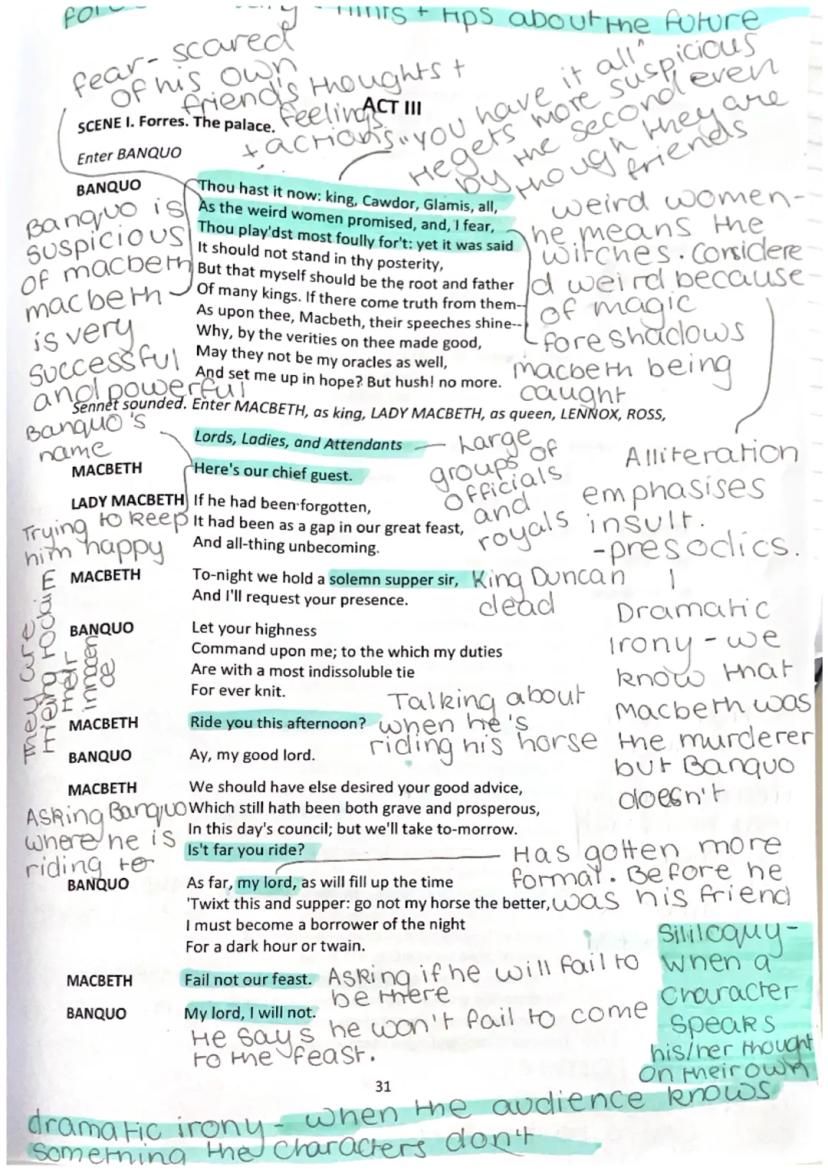 hints + tips about the future
fear- scared
of his own
friend's thoughts +
feelings
+ actions
"you have it all"
He gets more suspicious
by the second even
though they are
friends
ACT III
SCENE I. Forres. The palace.
Enter BANQUO
BANQUO
Thou hast it now: king, Cawdor, Glamis, all,
As the weird women promised, and, I fear,
Thou play'dst most foully for't: yet it was said
It should not stand in thy posterity,
But that myself should be the root and father
Of many kings. If there come truth from them--
As upon thee, Macbeth, their speeches shine--
Why, by the verities on thee made good,
May they not be my oracles as well,
And set me up in hope? But hush! no more.
Banquo is
suspicious
of macbeth
macbeth
is very
successful
and powerful
weird women-
he means the
witches. Considere
d weird because
of magic
foreshadows
macbeth being
caught
Sennet sounded. Enter MACBETH, as king, LADY MACBETH, as queen, LENNOX, ROSS,
Lords, Ladies, and Attendants
Banquo's
name
Large
groups of
officials
and
royals
Alliteration
emphasises
insult.
-presodics.
MACBETH
Here's our chief guest.
LADY MACBETH
If he had been forgotten,
It had been as a gap in our great feast,
And all-thing unbecoming.
Trying to keep
him happy
MACBETH
To-night we hold a solemn supper sir,
And I'll request your presence.
King Duncan
dead
Dramatic
irony - we
know that
macbeth was
the murderer
but Banquo
doesn't
BANQUO
Let your highness
Command upon me; to the which my duties
Are with a most indissoluble tie
For ever knit.
They are
MACBETH
Ride you this afternoon?
Talking about
when he's
riding his horse
BANQUO
Ay, my good lord.
MACBETH
We should have else desired your good advice,
Which still hath been both grave and prosperous,
In this day's council; but we'll take to-morrow.
Is't far you ride?
Asking Banquo
where he is
riding to
Has gotten more
formal. Before he
was his friend
BANQUO
As far, my lord, as will fill up the time
'Twixt this and supper: go not my horse the better,
I must become a borrower of the night
For a dark hour or twain.
MACBETH
Fail not our feast.
Asking if he will fail to
be there
BANQUO
My lord, I will not.
He says he won't fail to come
to the feast.
Sililoquy-
when a
character
speaks
his/her thought
on their own
31
dramatic irony - when the audience knows
something the characters don't